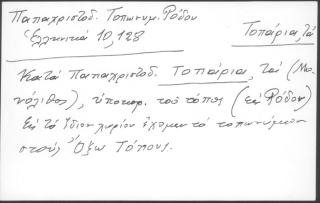 Παπαχριστοδ. Τοπωνυμ. Ρόδου
Ἑλληνικά 10, 128
Τοπάρια, τά
Κατά Παπαχριστοδ. Τοπάρια, τά (Μο-
νόλιθος), ὑποκορ. τοῦ τόπος (ἐν Ρόδῳ)
Εἰς τό ἴδιον χωρίον ἔχομεν τό τοπωνύμιον
στούς Ὄξω Τόπους.